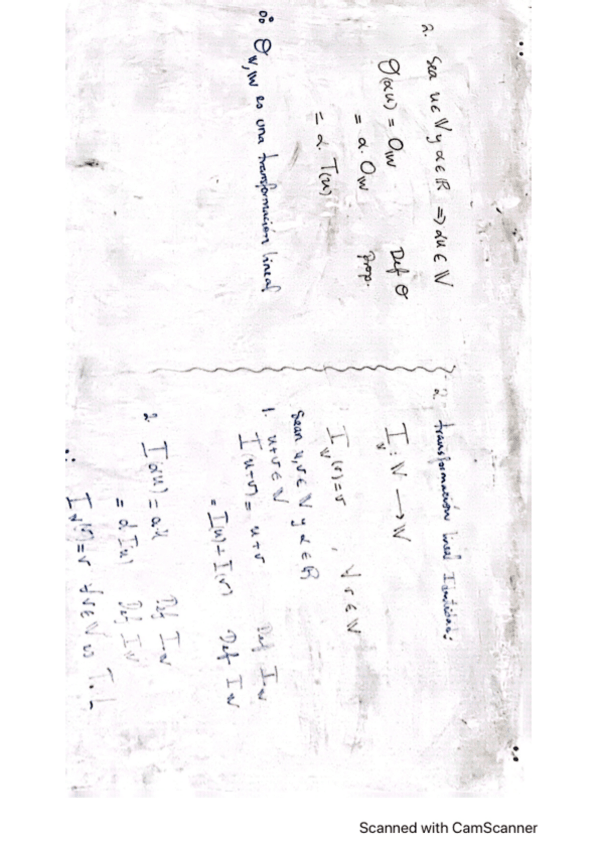 2. Sea u ∈ V y α ∈ R => αu ∈ V
θ(αu) = 0w Def θ
= α. 0w prop.
= α. T(u)
∴ θ v,w es una transformación lineal
2. transformación lineal Identidad:
I v : V → V
I v (v) = v , ∀ v ∈ V
Sean u, v ∈ V y α ∈ R
1. u+v ∈ V
I(u+v) = u+v Def I v
= I(u) + I(v) Def I v
2. I(αu) = αu Def I v
= α I(u) Def I v
∴ I v (v) = v ∀ v ∈ V es T.L
Scanned with CamScanner